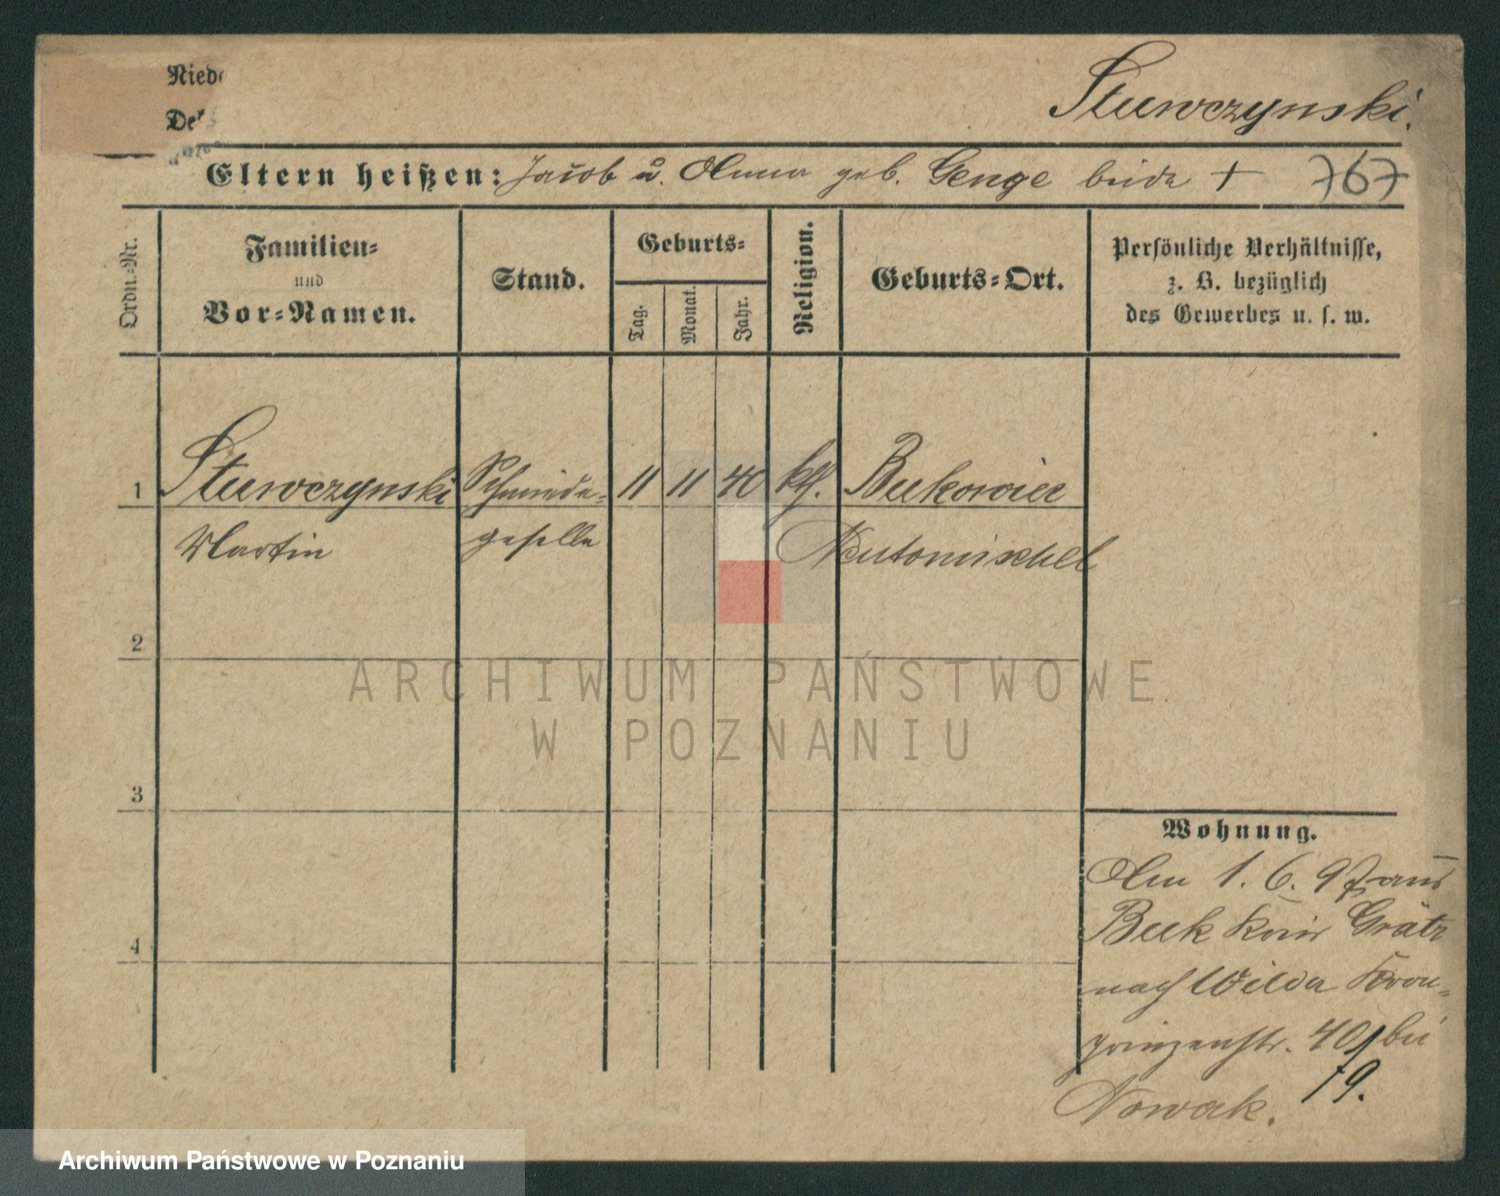 Stuwczynski.
Nied
De
Eltern heißen: Jacob u. Anna geb. Genge beide +
767
Ordn.-Nr.
Familien-
und
Vor-Namen.
Stand.
Geburts-
Tag.
Monat.
Jahr.
Religion.
Geburts-Ort.
Persönliche Verhältnisse,
z. B. bezüglich
des Gewerbes u. s. w.
1 Stuwczynski Schmiede- 11 11 40 kth. Bukowiec
Martin geselle Neutomischel
2
3
4
Wohnung.
Am 1. 6. 97 aus
Buk Kreis Grätz
nach Wilda Kron-
prinzenstr. 40 bei
Nowak. 79.
ARCHIWUM PAŃSTWOWE
W POZNANIU
Archiwum Państwowe w Poznaniu